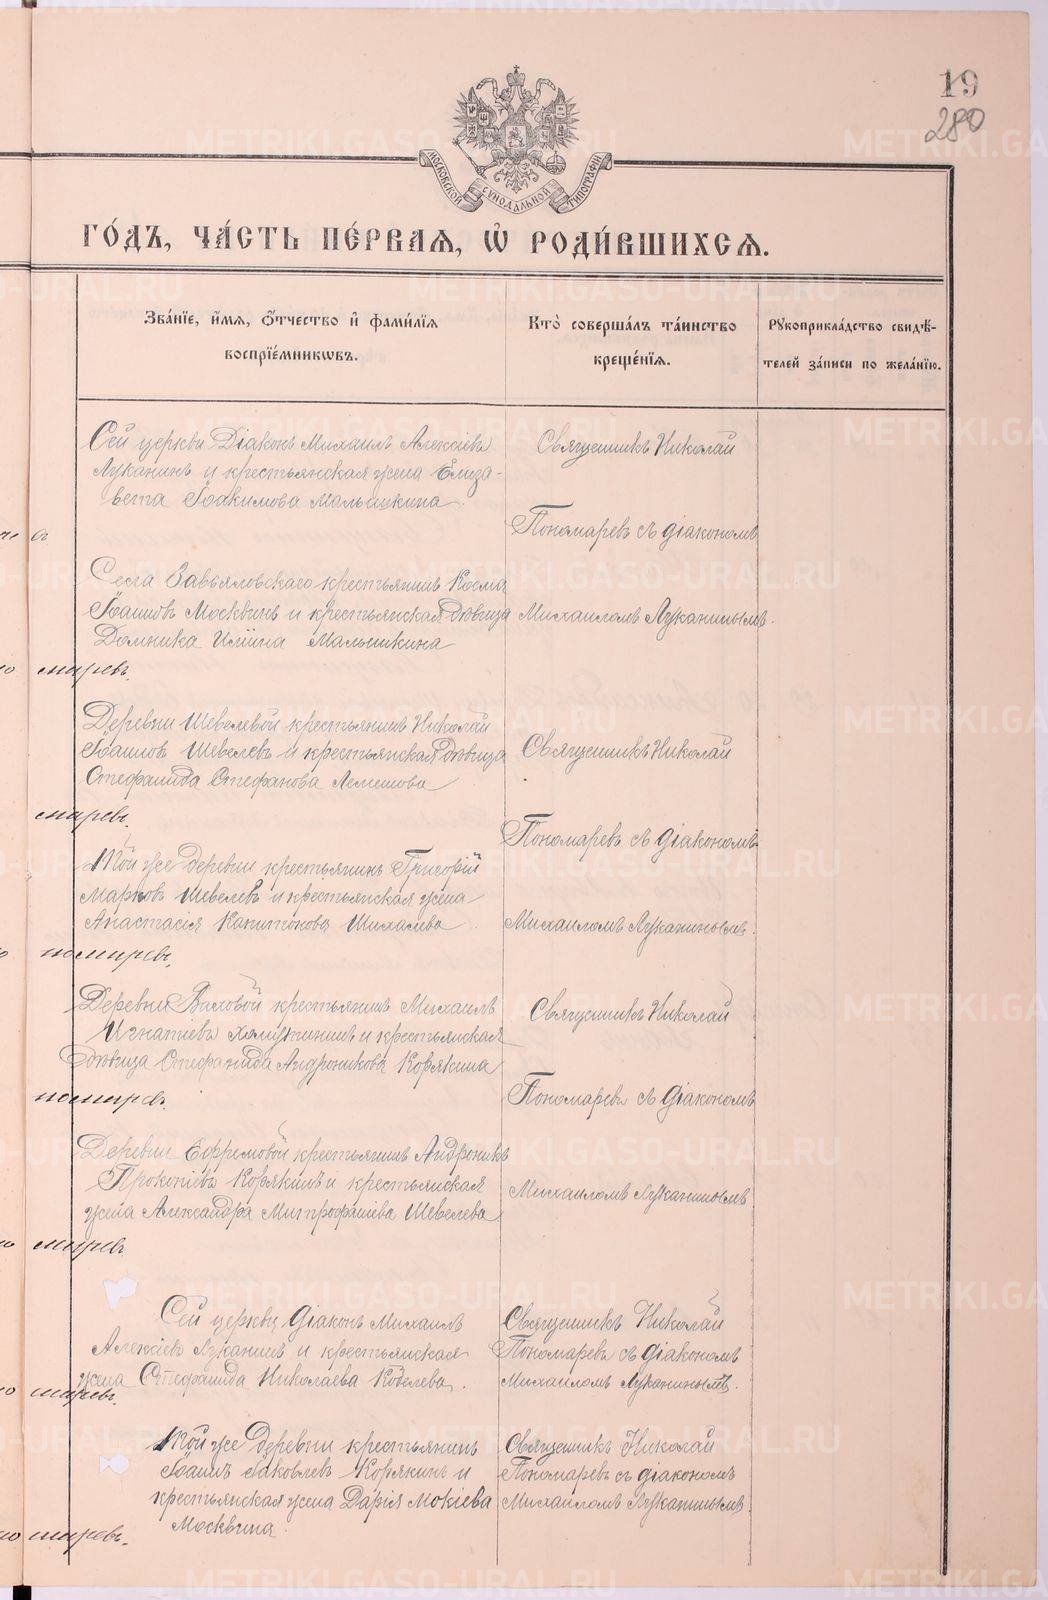 19
280
МОСКОВСКОЙ СѴНОДАЛЬНОЙ ТИПОГРАФІИ
ГО́ДЪ, ЧА́СТЬ ПЕ́РВАѦ, Ѡ҆ РОДИ́ВШИХСѦ.
Зва́нїе, и҆́мѧ, ѻ҆́тчество и҆ фами́лїѧ
воспрїе́мникѡвъ.
Кто̀ соверша́лъ та́инство
креще́нїѧ.
Рꙋкоприкла́дство свидѣ́-
телей за́писи по жела́нїю.
Сей церкви Діаконъ Михаилъ Алексіевъ
Луканинъ и крестьянская жена Елиза-
вета Іоакимова Малышкина.
Священникъ Николай
Пономаревъ съ діакономъ
Села Завьяловскаго крестьянинъ Косма
Іоанновъ Москвинъ и крестьянская дѣвица
Домника Иліина Малышкина
Михаиломъ Луканинымъ.
Деревни Шевелевой крестьянинъ Николай
Іоанновъ Шевелевъ и крестьянская дѣвица
Стефанида Стефанова Лемешова
Священникъ Николай
Пономаревъ съ діакономъ
Той же деревни крестьянинъ Григорій
Марковъ Шевелевъ и крестьянская жена
Анастасія Капитонова Шихалева.
Михаиломъ Луканинымъ.
Деревни Виховой крестьянинъ Михаилъ
Игнатіевъ Хомутининъ и крестьянская
дѣвица Стефанида Андроникова Корякина
Священникъ Николай
Пономаревъ съ діакономъ
Деревни Ефремовой крестьянинъ Андроникъ
Прокопіевъ Корякинъ и крестьянская
жена Александра Митрофанева Шевелева
Михаиломъ Луканинымъ
Сей церкви Діаконъ Михаилъ
Алексіевъ Луканинъ и крестьянская
жена Стефанида Николаева Кобелева.
Священникъ Николай
Пономаревъ съ діакономъ
Михаиломъ Луканинымъ.
Той же деревни крестьянинъ
Іоаннъ Іаковлевъ Корякинъ и
крестьянская жена Дарія Мокіева
Москвина.
Священникъ Николай
Пономаревъ съ діакономъ
Михаиломъ Луканинымъ.
METRIKI.GASO-URAL.RU